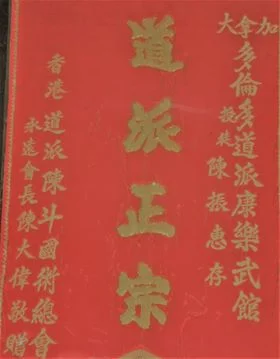 加拿大
多倫多道派康樂武館
教裝陳振惠存
道派正宗
香港道派陳斗國術總會
永遠會長陳大偉敬贈